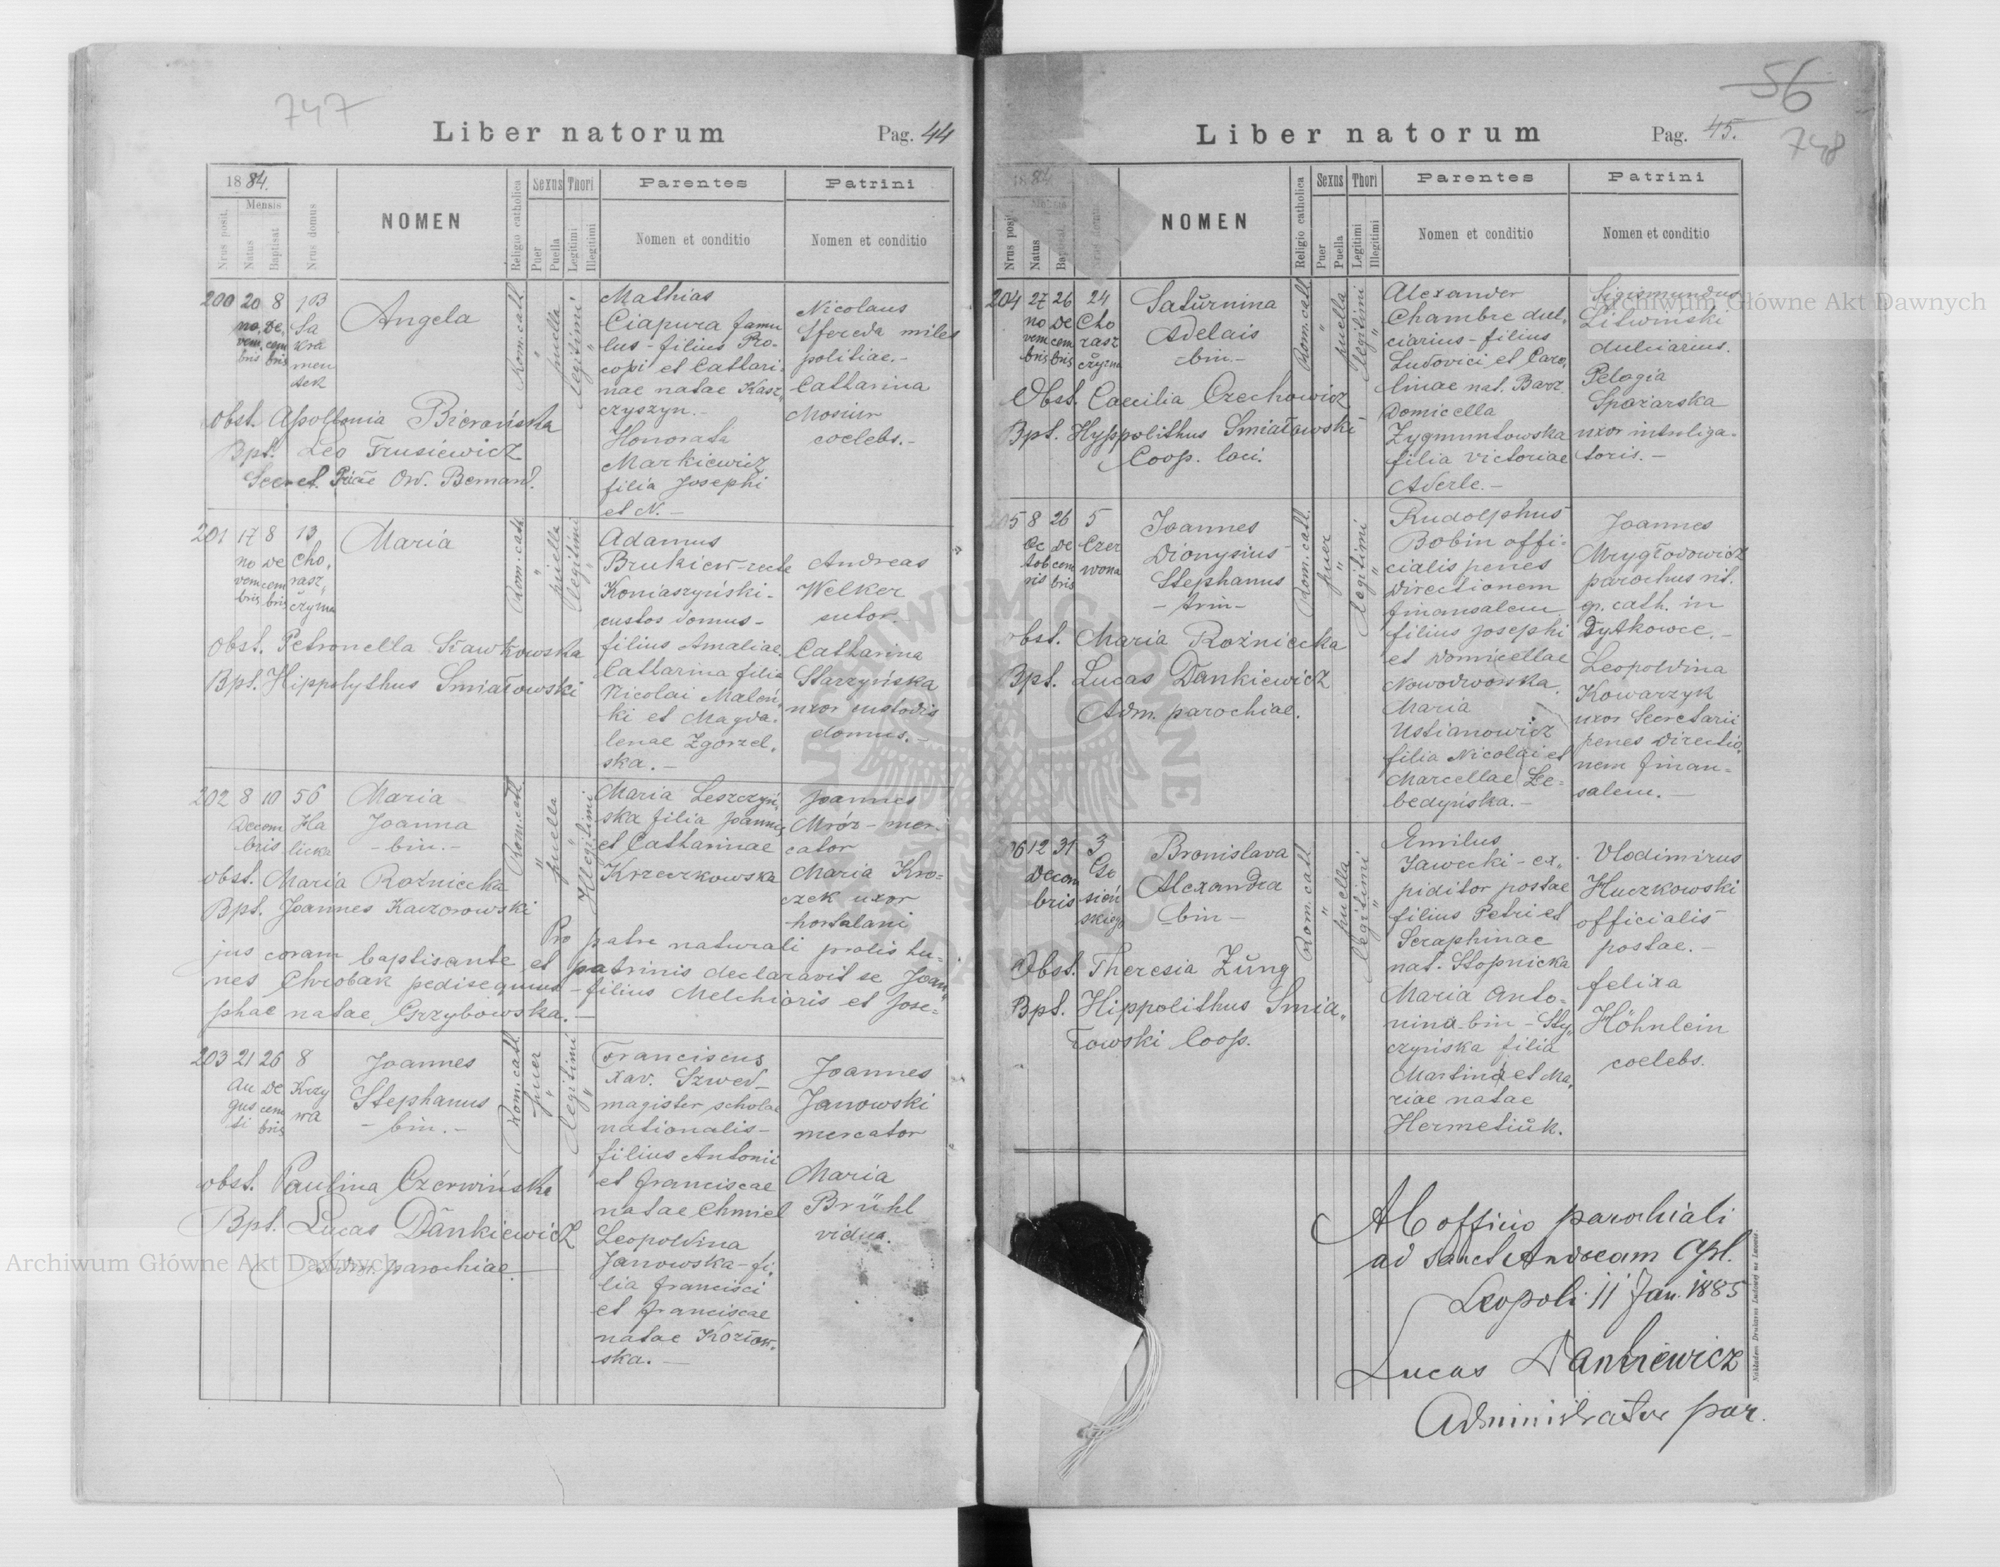 747
Liber natorum
Pag. 44
1884.
Mensis
Nrus posit.
Natus
Baptisat
Nrus domus
NOMEN
Religio catholica
Sexus
Puer
Puella
Thori
Legitimi
Illegitimi
Parentes
Nomen et conditio
Patrini
Nomen et conditio
200 20 8 103
no, De,
vem cem
bris bris
Sa
kra
men
tek
Angela
Rom. cath
puella
legitimi
Mathias
Ciapura famu
lus - filius Pro-
copi et Cathari
nae natae Kasz,
czyszyn. -
Honorata
Markiewicz
filia Josephi
et N. -
Nicolaus
Sfereda miles
politiae. -
Catharina
Mosiur
coelebs. -
Obst. Apollonia Bieronska
Bpt. Leo Trusiewicz
Secret. Ord. Bernard.
201 17 8 13
no De
vem cem
bris bris
Cho,
rasz,
czyzna
Maria
Rom. cath
puella
legitimi
Adamus
Brukiew - recte
Koniaszyński -
custos domus -
filius Amaliae
Catharina filia
Nicolai Maleń,
ki et Magda,
lenae Zgorzel,
ska. -
Andreas
Welker
sutor. -
Catharina
Starzyńska
uxor custodis
domus. -
Obst. Petronella Kawkowska
Bpt. Hippolythus Smiałowski
202 8 10 56
Decem
bris
Ha
licka
Maria
Joanna
- bin. -
Rom. cath
puella
Illegitimi
Maria Leszczyń,
ska filia Joannis
et Catharinae
Krzeczkowska
Joannes
Mróz - mer-
cator
Maria Kro=
czek uxor
hortulani
Obst. Maria Rożniecka
Bpt. Joannes Kaczorowski
Pro patre naturali prolis hu=
jus coram baptisante et patrinis declaravit se Joan,
nes Chrobak pedisequus - filius Melchioris et Jose=
phae natae Grzybowska. -
203 21 26 8
Au
gus
ti
De
cem
bris
Krzy
wa
Joannes
Stephanus
- bin. -
Rom. cath.
puer
legitimi
Franciscus
Xav. Szwed -
magister scholae
nationalis -
filius Antonii
et Franciscae
natae Chmiel
Leopoldina
Janowska - fi,
lia Francisci
et Franciscae
natae Kozłow,
ska. -
Joannes
Janowski
mercator
Maria
Brühl
vidua.
Obst. Paulina Czerwińska
Bpt. Lucas Dankiewicz
Adm. parochiae.
56
748
Liber natorum
Pag. 45.
1884
Mensis
Nrus posit.
Natus
Baptisat
NOMEN
Religio catholica
Sexus
Puer
Puella
Thori
Legitimi
Illegitimi
Parentes
Nomen et conditio
Patrini
Nomen et conditio
204 27 26 24
no De
vem cem
bris bris
Cho
rasz
czyzna
Saturnina
Adelais
- bin -
Rom. cath
puella
legitimi
Alexander
Chambre dul,
ciarius - filius
Ludovici et Caro,
linae nat. Barz
Domicella
Zygmuntowska
filia Victoriae
Aderle. -
Sigismundus
Litwinski
dulciarius.
Pelagia
Spożarska
uxor introliga-
toris. -
Obst. Caecilia Orzechowicz
Bpt. Hyppolithus Smiałowski
Coop. loci.
205 8 26 5
Oc De
tob cem
ris bris
Czer
wona
Joannes
Dionysius
Stephanus
- trin -
Rom. cath.
puer
legitimi
Rudolphus
Bobin offi-
cialis penes
Directionem
finansalem
filius Josephi
et Domicellae
Nowodworska.
Maria
Ustianowicz
filia Nicolai et
Marcellae Le-
bedyńska. -
Joannes
Mrygłodowicz
parochus rit.
gr. cath. in
Dytkowce. -
Leopoldina
Kowarzyk
uxor Secretarii
penes Directio,
nem finan=
salem. -
Obst. Maria Rożniecka
Bpt. Lucas Dankiewicz
Adm. parochiae.
06 12 31 3
Decem
bris
Go
sień
skiego
Bronislava
Alexandra
- bin -
Rom. cath
puella
legitimi
Emilus
Jawecki - ex,
piditor postae
filius Petri et
Seraphinae
nat. Stopnicka
Maria Anto-
nina - bin - Sty,
czyńska filia
Martini et Ma,
riae natae
Hermetiuk.
Vlodimirus
Huczkowski
officialis
postae. -
Felixa
Höhnlein
coelebs.
Obst. Theresia Zung
Bpt. Hippolithus Smia,
łowski Coop.
Ab officio parochiali
ad Sanct Andream Apl.
Leopoli 11 Jan. 1885
Lucas Dankiewicz
Administrator par.
Nakładem Drukarni Ludowej we Lwowie.
Archiwum Główne Akt Dawnych
Archiwum Główne Akt Dawnych
ARCHIWUM GŁÓWNE AKT DAWNYCH